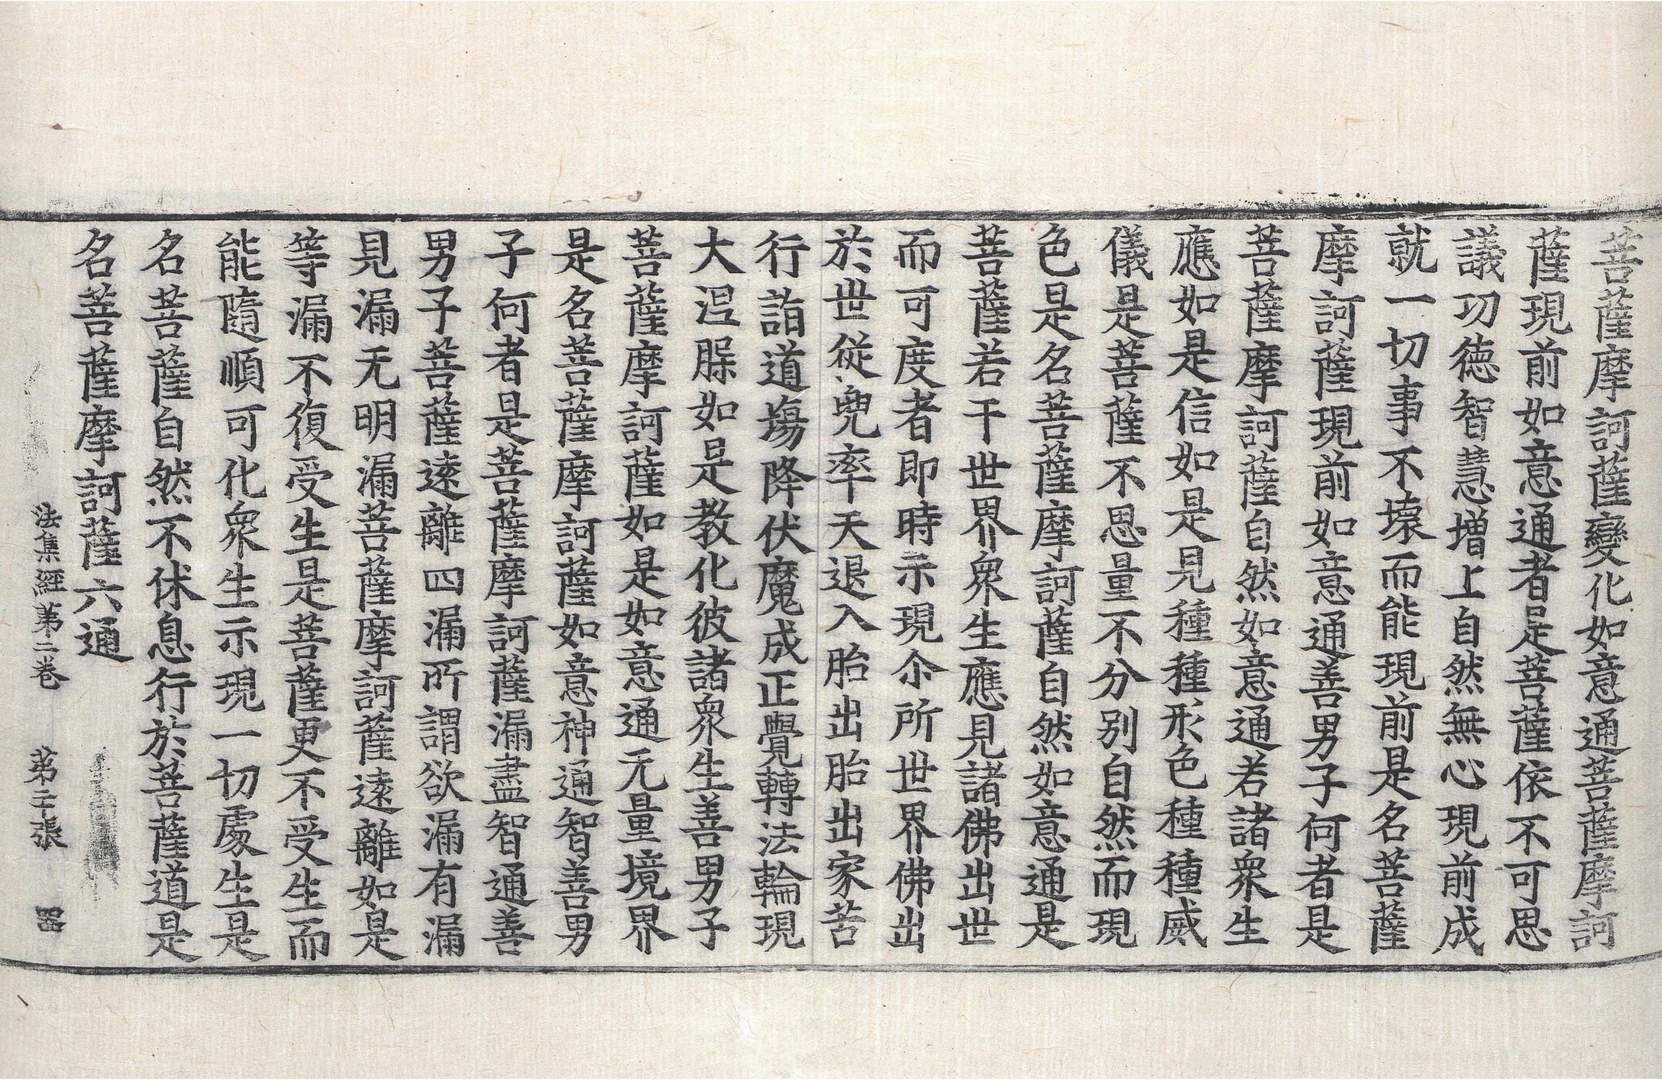 菩薩摩訶薩變化如意通菩薩摩訶
薩現前如意通者是菩薩依不可思
議功德智慧增上自然無心現前成
就一切事不壞而能現前是名菩薩
摩訶薩現前如意通善男子何者是
菩薩摩訶薩自然如意通若諸衆生
應如是信如是見種種形色種種威
儀是菩薩不思量不分別自然而現
色是名菩薩摩訶薩自然如意通是
菩薩若干世界衆生應見諸佛出世
而可度者即時示現尒所世界佛出
於世從兜率天退入胎出胎出家苦
行詣道場降伏魔成正覺轉法輪現
大涅槃如是教化彼諸衆生善男子
菩薩摩訶薩如是如意通无量境界
是名菩薩摩訶薩如意神通智善男
子何者是菩薩摩訶薩漏盡智通善
男子菩薩遠離四漏所謂欲漏有漏
見漏无明漏菩薩摩訶薩遠離如是
等漏不復受生是菩薩更不受生而
能隨順可化衆生示現一切處生是
名菩薩自然不休息行於菩薩道是
名菩薩摩訶薩六通
法集經第二卷　第二張　器